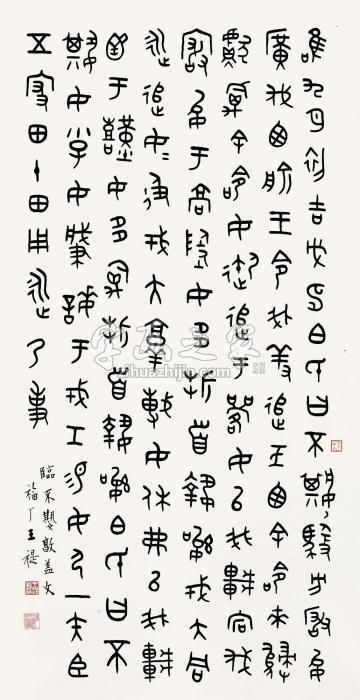 隹九月初吉戊申白氏曰不其馭方厰允
廣伐西俞王令我羞追于西余來歸
獻禽余命女御追于洛女以我車宕伐
厰允于高陵女多折首執訊戎大同
從追女女及戎大敦搏女休弗以我車
函于艱女多禽折首執訊白氏曰不
其女小子女肇誨于戎工易女弓一矢束臣
五家田十田用從乃事
臨不𡢁敦蓋文
福厂王禔